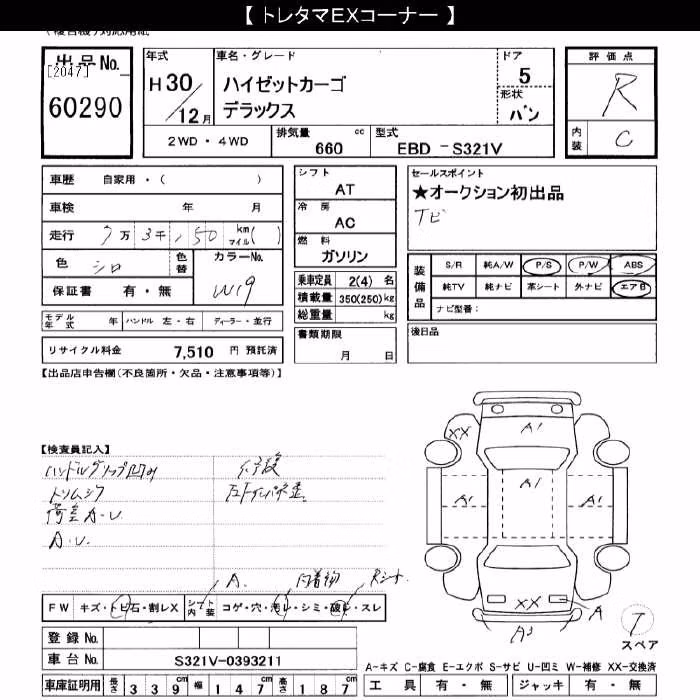 【 トレタマEXコーナー 】
出品No.
[2047]
60290
年式
H30/12月
車名・グレード
ハイゼットカーゴ
デラックス
ドア
5
形状
バン
評価点
R
内装
C
2WD・4WD
排気量 cc
660
型式
EBD-S321V
車歴 自家用・( )
車検 年 月
走行 7万3千150 km マイル( )
色 シロ
色替
カラーNo.
W19
保証書 有・無
モデル年式 年 ハンドル 左・右 ディーラー・並行
リサイクル料金 7,510 円 預託済
シフト
AT
冷房
AC
燃料
ガソリン
乗車定員 2(4) 名
積載量 350(250) kg
総重量 kg
書類期限
月 日
セールスポイント
★オークション初出品
ナビ
装備品
S/R 純A/W P/S P/W ABS
純TV 純ナビ 革シート 外ナビ エアB
ナビ型番:
後日品
【出品店申告欄(不良箇所・欠品・注意事項等)】
【検査員記入】
ハンドルグリップ凹み
トリムシワ
荷室A.U.
A.U.
A.
FW キズ・トビ石・割レX
シフト内装 コゲ・穴・汚レ・シミ・破レ・スレ
登録No.
車台No. S321V-0393211
車庫証明用 長さ 339cm 幅 147cm 高さ 187cm
XX
A1
A1
A1
A1
XX
A
T
スペア
A-キズ C-腐食 E-エクボ S-サビ U-凹ミ W-補修 XX-交換済
工具 有・無 ジャッキ 有・無